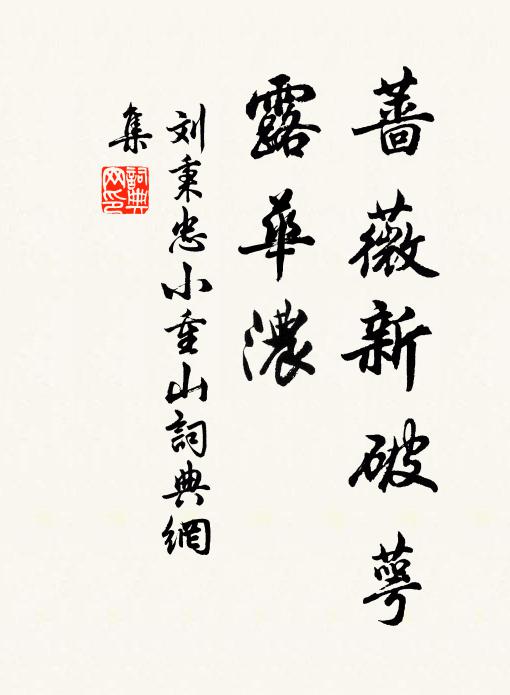 蔷薇新破萼
露華濃
刘秉忠小重山詞典網
集
詞典网印